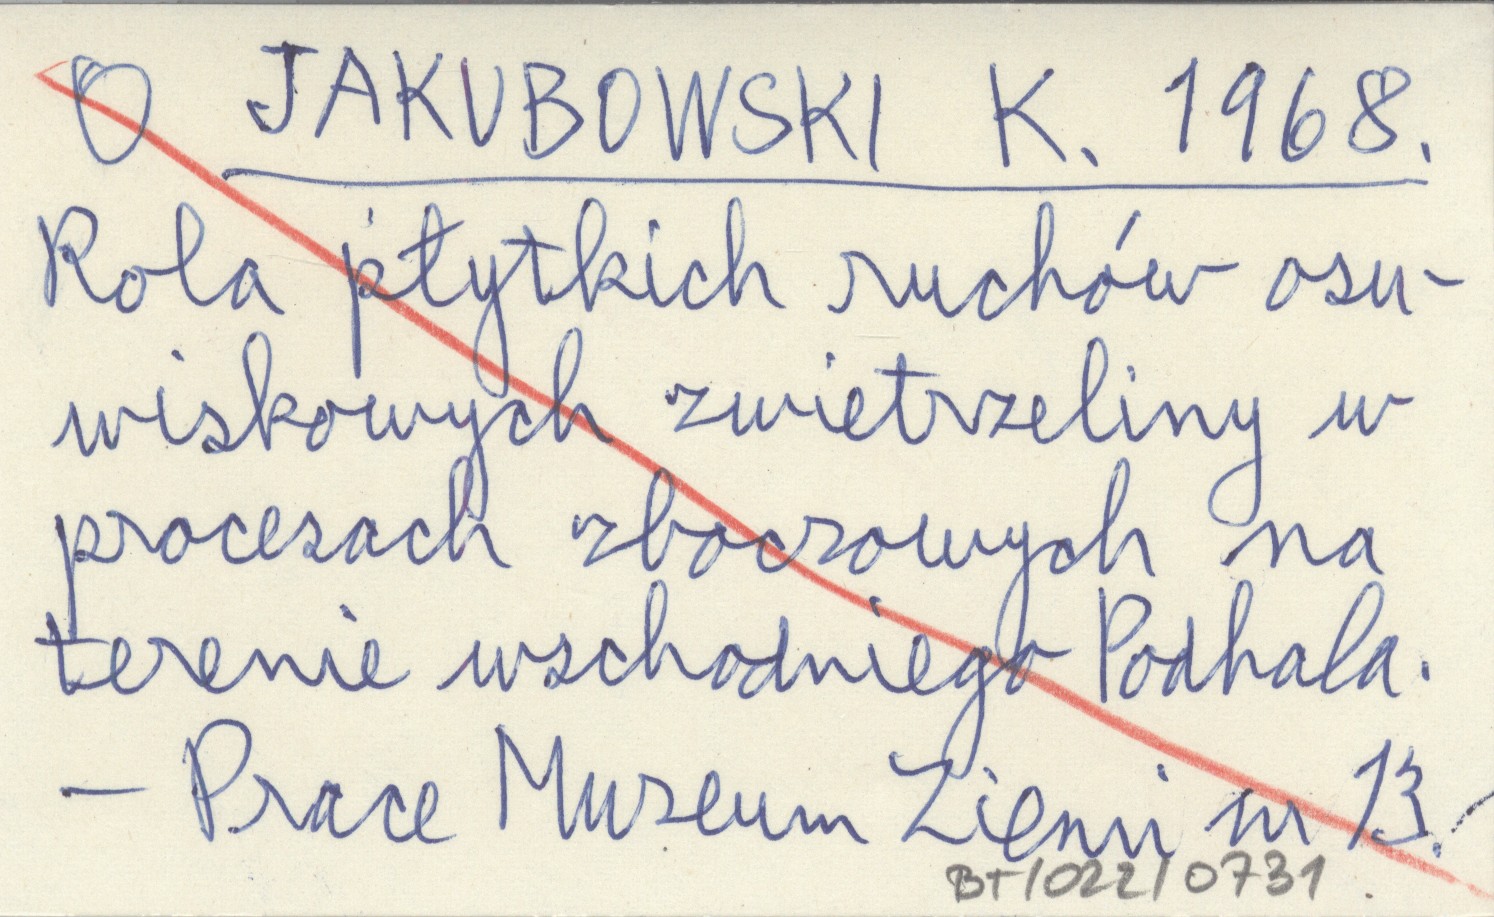 O JAKUBOWSKI K. 1968.
Rola płytkich ruchów osu-
wiskowych zwietrzeliny w
procesach zboczowych na
terenie wschodniego Podhala.
- Prace Muzeum Ziemi nr 13.
BT/022/0731